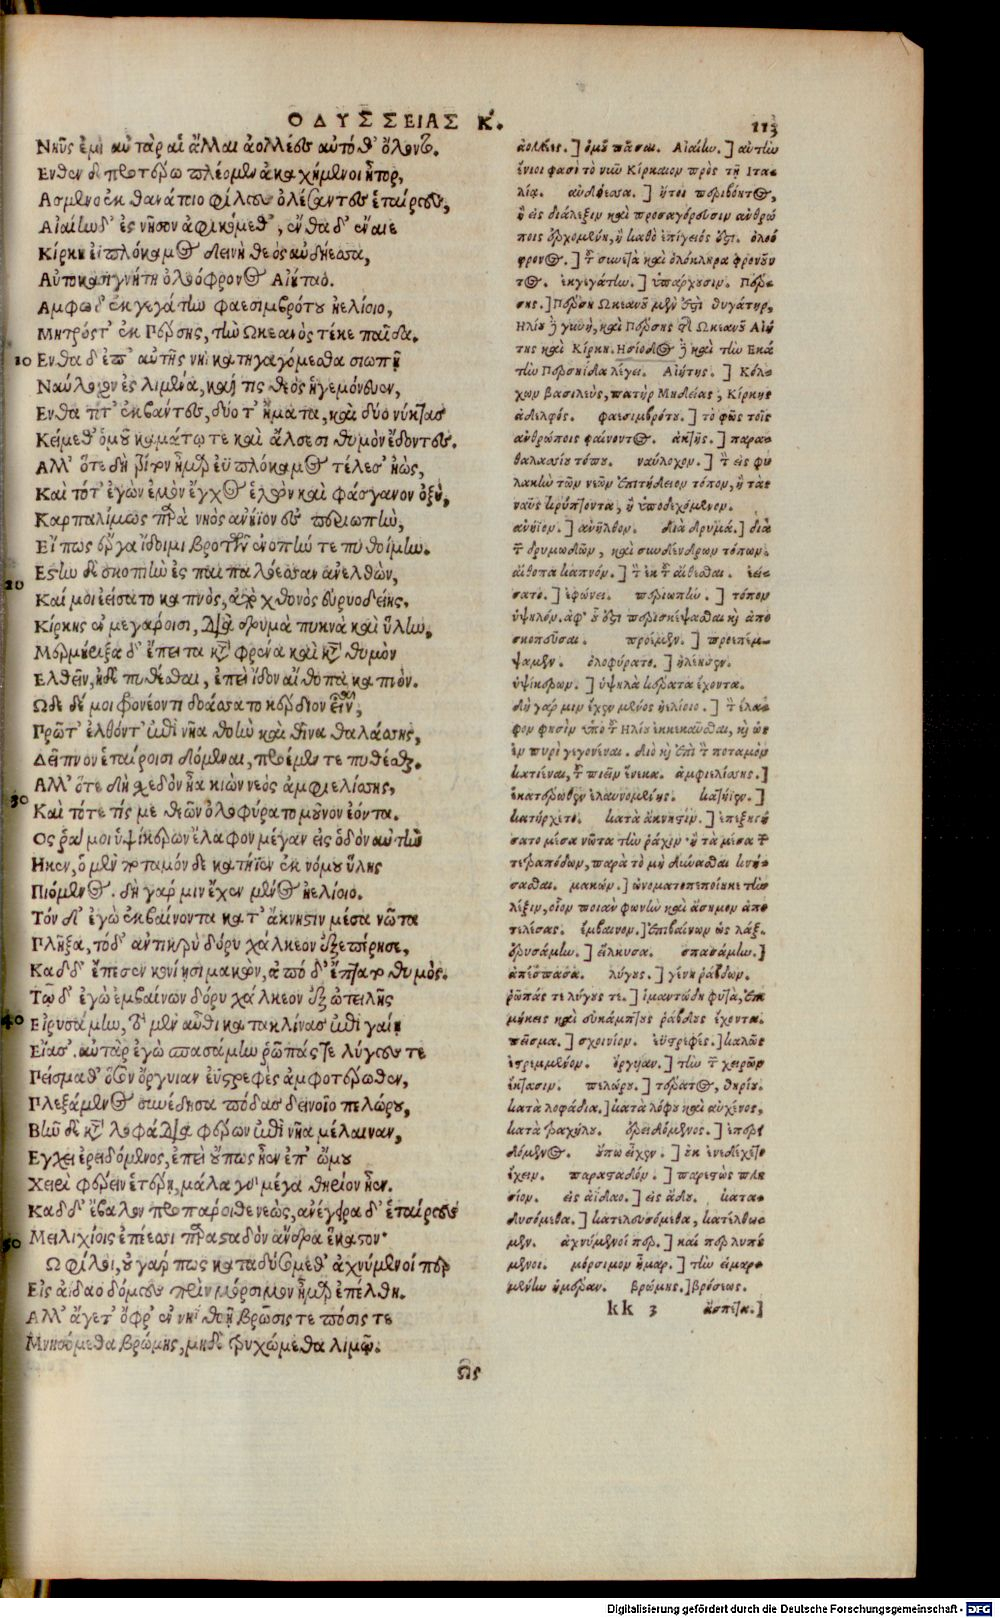 ΟΔΥΣΣΕΙΑΣ Κ.
113
Νηῦς ἐμὴ αὐτὰρ αἱ ἄλλαι ἀολλέες αὐτόθ' ὄλοντο.
Ενθεν δὲ προτέρω πλέομεν ἀκαχήμενοι ἦτορ,
Ασμενοι ἐκ θανάτοιο φίλους ὀλέσαντες ἑταίρους,
Αἰαίην δ' ἐς νῆσον ἀφικόμεθ', ἔνθα δ' ἔναιε
Κίρκη ἐϋπλόκαμος δεινὴ θεὸς αὐδήεσσα,
Αὐτοκασιγνήτη ὀλοόφρονος Αἰήταο.
Αμφω δ' ἐκγεγάτην φαεσιμβρότου ἠελίοιο,
Μητρός τ' ἐκ Πέρσης, τὴν Ωκεανὸς τέκε παῖδα.
10 Ενθα δ' ἐπ' αὐτῆς νηῒ κατηγαγόμεσθα σιωπῇ
Ναύλοχον ἐς λιμένα, καί τις θεὸς ἡγεμόνευεν,
Ενθα τότ' ἐκβάντες, δύο τ' ἤματα, καὶ δύο νύκτας
Κείμεθ' ὁμοῦ καμάτῳ τε καὶ ἄλγεσι θυμὸν ἔδοντες.
Αλλ' ὅτε δὴ τρίτον ἦμαρ ἐϋπλόκαμος τέλεσ' ἠὼς,
Καὶ τότ' ἐγὼν ἐμὸν ἔγχος ἑλὼν καὶ φάσγανον ὀξὺ,
Καρπαλίμως παρὰ νηὸς ἀνήϊον ἐς περιωπὴν,
Εἴ πως ἔργα ἴδοιμι βροτῶν ἐνοπήν τε πυθοίμην.
20 Εστην δὲ σκοπιὴν ἐς παιπαλόεσσαν ἀνελθὼν,
Καί μοι ἐείσατο καπνὸς, ἀπὸ χθονὸς εὐρυοδείης,
Κίρκης ἐν μεγάροισι, διὰ δρυμὰ πυκνὰ καὶ ὕλην.
Μερμήριξα δ' ἔπειτα κατὰ φρένα καὶ κατὰ θυμὸν
Ελθεῖν, ἠδὲ πυθέσθαι, ἐπεὶ ἴδον αἴθοπα καπνόν.
Ωδε δέ μοι φρονέοντι δοάσσατο κέρδιον εἶναι,
Πρῶτ' ἐλθόντ' ἐπὶ νῆα θοὴν καὶ θῖνα θαλάσσης,
Δεῖπνον ἑταίροισι δόμεναι, προέμεν τε πυθέσθαι.
Αλλ' ὅτε δὴ σχεδὸν ἦα κιὼν νεὸς ἀμφιελίσσης,
30 Καὶ τότε τίς με θεῶν ὀλοφύρατο μοῦνον ἐόντα.
Ος ῥά μοι ὑψίκερων ἔλαφον μέγαν εἰς ὁδὸν αὐτὴν
Ηκεν, ὁ μὲν ποταμόν δε κατήϊεν ἐκ νόμου ὕλης
Πιόμενος. δὴ γάρ μιν ἔχεν μένος ἠελίοιο.
Τόν δ' ἐγὼ ἐκβαίνοντα κατ' ἄκνηστιν μέσα νῶτα
Πλῆξα, τὸ δ' ἀντικρὺ δόρυ χάλκεον ἐξεπέρησε,
Καδ δ' ἔπεσεν κονίῃσι μακὼν, ἀπὸ δ' ἔπτατο θυμός.
Τῷ δ' ἐγὼ ἐμβαίνων δόρυ χάλκεον ἐξ ὠτειλῆς
40 Εἰρυσάμην, τὸ μὲν αὖθι κατακλίνας ἐπὶ γαίῃ
Εἴασ'. αὐτὰρ ἐγὼ σπασάμην ῥῶπάς τε λύγους τε
Πεῖσμα θ' ὅσον ὄργυιαν ἐϋστρεφὲς ἀμφοτέρωθεν,
Πλεξάμενος συνέδησα πόδας δεινοῖο πελώρου,
Βῆν δὲ καταλοφάδια φέρων ἐπὶ νῆα μέλαιναν,
Εγχει ἐρειδόμενος, ἐπεὶ οὔπως ἦεν ἐπ' ὤμου
Χειρὶ φέρειν ἑτέρῃ, μάλα γὰρ μέγα θηρίον ἦεν.
Καδ δ' ἔβαλον προπάροιθε νεὼς, ἀνέγειρα δ' ἑταίρους
50 Μειλιχίοις ἐπέεσσι παρασταδὸν ἄνδρα ἕκαστον·
Ω φίλοι, οὐ γάρ πως καταδυσόμεθ' ἀχνύμενοί περ
Εἰς ἀΐδαο δόμους πρὶν μόρσιμον ἦμαρ ἐπέλθῃ.
Αλλ' ἄγετ' ὄφρ' ἐν νηῒ θοῇ βρῶσίς τε πόσις τε
Μνησόμεθα βρώμης, μηδὲ τρυχώμεθα λιμῷ.
Ως
ἀολλέες.] ὁμοῦ πᾶσαι. Αἰαίην.] αὐτὴν
ἔνιοι φασὶ τὸ νῦν Κίρκαιον πρὸς τῇ Ιτα-
λίᾳ. αὐδήεσσα.] ἤτοι περιβόητος,
ἢ εἰς διάλεξιν καὶ προσαγόρευσιν ἀνθρώ
ποις ἐρχομένη, ἢ καθὸ ἐπίγειός ἐστι. ὀλοό
φρονος.] τοῦ συνετὰ καὶ ὁλόκληρα φρονοῦν
τος. ἐκγεγάτην.] ὑπάρχουσιν. Πέρ-
σης.] Πέρση Ωκεανοῦ μὲν ἐστὶ θυγάτηρ,
Ηλίου δὲ γυνὴ, καὶ Πέρσης τῆς Ωκεανοῦ Αἰή
της καὶ Κίρκη. Ησίοδος δὲ καὶ τὴν Εκά
την Περσηίδα λέγει. Αἰήτης.] Κόλ-
χων βασιλεὺς, πατὴρ Μηδείας, Κίρκης
ἀδελφός. φαεσιμβρότου.] τὸ φῶς τοῖς
ἀνθρώποις φαίνοντος. ἀκτῆς.] παρα-
θαλασσίου τόπου. ναύλοχον.] τὸν εἰς φυ
λακὴν τῶν νεῶν ἐπιτήδειον τόπον, ἢ τὰς
ναῦς κρύπτοντα, ἢ ὑποδεχόμενον.
ἀνήϊον.] ἀνῆλθον. διὰ δρυμά.] διὰ
τῶν δρυμωδῶν, καὶ συνδένδρων τόπων.
αἴθοπα καπνόν.] τὸν ἐκ τοῦ αἴθεσθαι. ἐεί-
σατο.] ἐφάνει. περιωπὴν.] τόπον
ὑψηλόν. ἀφ' οὗ ἐστι περισκέψασθαι καὶ ἀπο
σκοπεῦσαι. προέμεν.] προεπέμ-
ψαμεν. ὀλοφύρατο.] ἠλέησεν.
ὑψίκερων.] ὑψηλὰ κέρατα ἔχοντα.
δὴ γάρ μιν ἔχεν μένος ἠελίοιο.] τὸν ἔλα-
φον φησὶν ὑπὸ τοῦ Ηλίου ἐκκεκαῦσθαι, καὶ ὡς
ἐν πυρὶ γεγονέναι. διὸ καὶ ἐπὶ τὸν ποταμὸν
κατιέναι, τοῦ πιεῖν ἕνεκα. ἀμφιελίσσης.]
ἑκατέρωθεν ἐλαυνομένης. κατήϊεν.]
κατήρχετο. κατὰ ἄκνηστιν.] ἐπεξηγή
σατο μέσα νῶτα τὴν ῥάχιν ἢ τὰ μέσα τῶν
τετραπόδων, παρὰ τὸ μὴ δύνασθαι κνή-
σασθαι. μακών.] ὠνοματοπεποίηκε τὴν
λέξιν, οἷον ποιὰν φωνὴν καὶ ἄσημον ἀπο
τελέσας. ἐμβαίνων.] ἐπιβαίνων ὡς λάξ.
ἐρυσάμην.] εἵλκυσα. σπασάμην.]
ἀπέσπασα. λύγους.] γένη ῥάβδων.
ῥῶπάς τε λύγους τε.] ἱμαντώδη φυτὰ, ἐπι
μήκεις καὶ εὐκάμπτους ῥάβδους ἔχοντα.
πεῖσμα.] σχοινίον. ἐϋστρεφές.] καλῶς
ἐστρεμμένον. ὄργυιαν.] τὴν τῶν χειρῶν
ἔκτασιν. πελώρου.] τέρατος, θηρίου.
καταλοφάδια.] κατὰ λόφου καὶ αὐχένος,
κατὰ τραχήλου. ἐρειδόμενος.] ἐπερει
δόμενος. οὔπω εἶχεν.] οὐκ ἐνεδέχετο
ἔχειν. παρασταδόν.] παρεστὼς πλη
σίον. εἰς ἀΐδαο.] εἰς ᾅδου. κατα-
δυσόμεθα.] κατελευσόμεθα, κατέλθω-
μεν. ἀχνύμενοί περ.] καί περ λυπού
μενοι. μόρσιμον ἦμαρ.] τὴν εἱμαρ-
μένην ἡμέραν. βρώμης.] βρώσεως.
kk 3 ἄσπετα.]
Digitalisierung gefördert durch die Deutsche Forschungsgemeinschaft - DFG